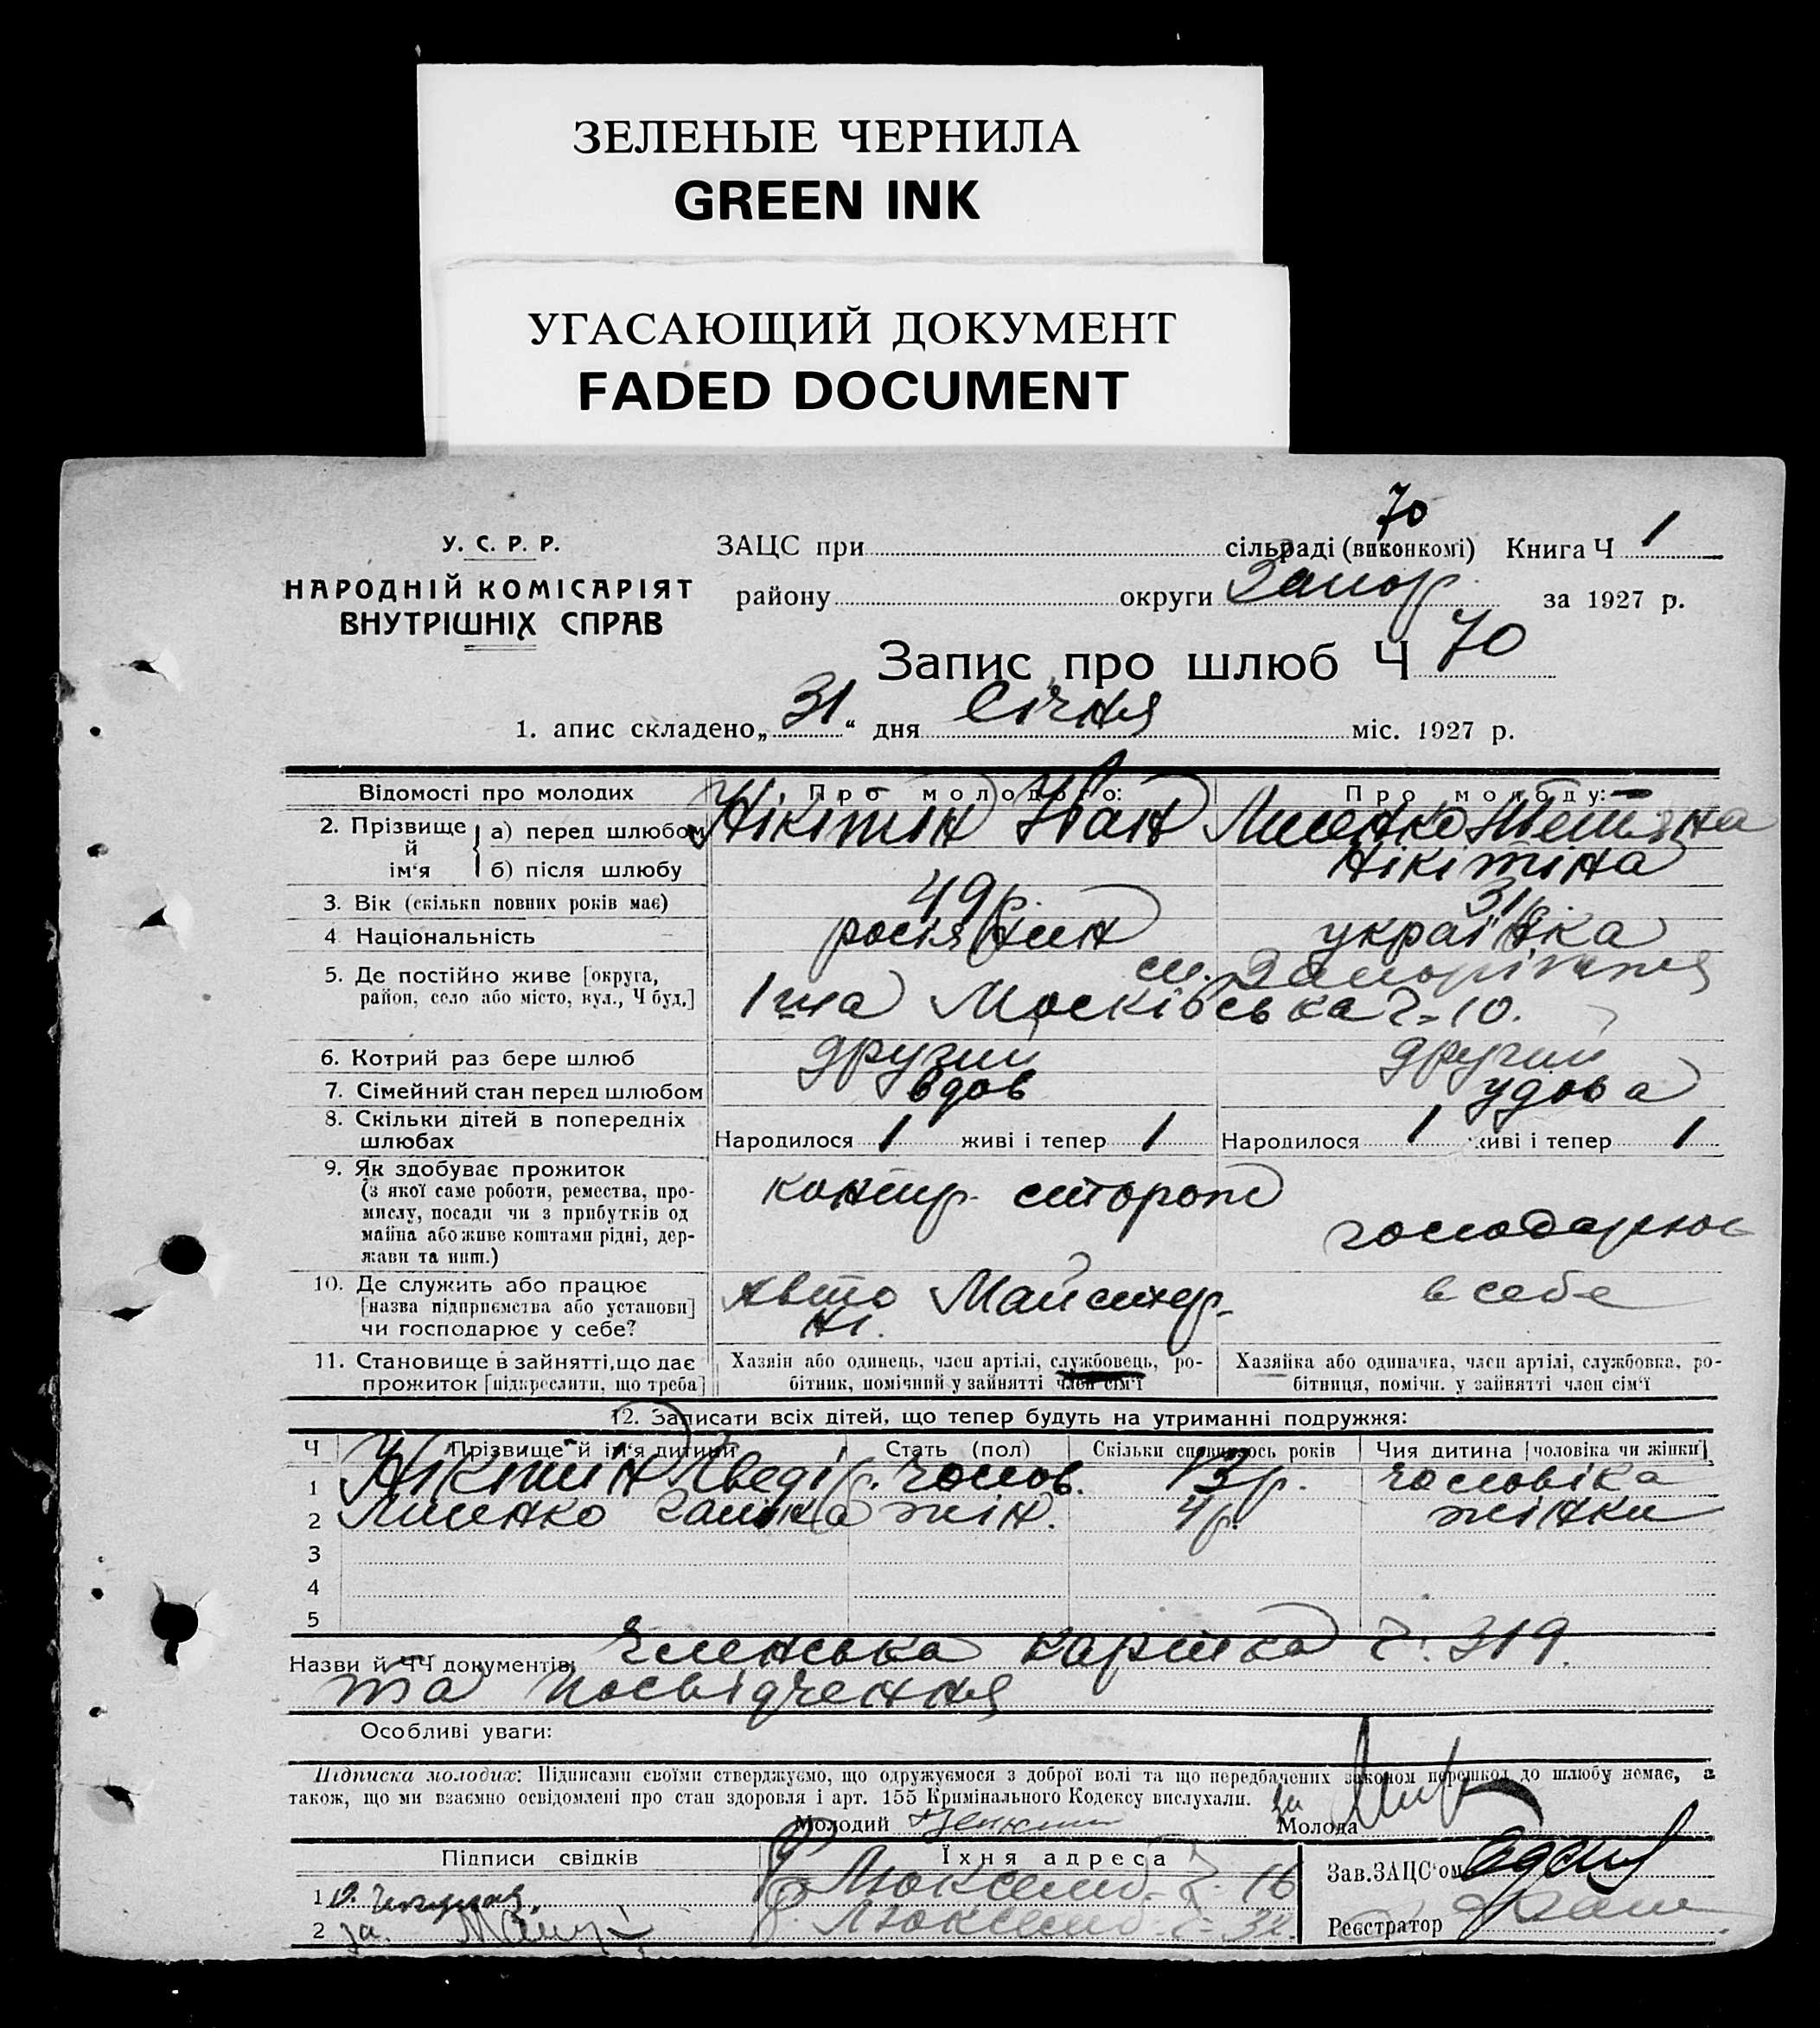 ЗЕЛЕНЫЕ ЧЕРНИЛА
GREEN INK
УГАСАЮЩИЙ ДОКУМЕНТ
FADED DOCUMENT
70
У. С. Р. Р.
НАРОДНІЙ КОМІСАРІЯТ
ВНУТРІШНІХ СПРАВ
ЗАЦС при сільраді (виконкомі) Книга Ч 1
району округи Запор. за 1927 р.
Запис про шлюб Ч 70
1. апис складено „31“ дня Січня міс. 1927 р.
Відомості про молодих Про молодого: Про молоду:
2. Прізвище й ім'я а) перед шлюбом Нікітін Іван Лисенко Тетяна
б) після шлюбу Нікітіна
3. Вік (скільки повних років має) 49 р. 31 р.
4 Національність росіянин українка
5. Де постійно живе [округа, м. Запоріжжя
район, село або місто, вул., Ч буд.] 1ша Московська Ч=10.
6. Котрий раз бере шлюб другий другий
7. Сімейний стан перед шлюбом вдов удова
8. Скільки дітей в попередніх
шлюбах Народилося 1 живі і тепер 1 Народилося 1 живі і тепер 1
9. Як здобуває прожиток
(з якої саме роботи, ремества, про-
мислу, посади чи з прибутків од
майна або живе коштами рідні, дер-
жави та инш.)
сторож
господарює
10. Де служить або працює
[назва підприємства або установи]
чи господарює у себе?
Авто Майстер-
ні.
в себе
11. Становище в зайнятті, що дає
прожиток [підкреслити, що треба]
Хазяін або одинець, член артілі, службовець, ро-
бітник, помічний у зайнятті член сім'ї
Хазяйка або одиначка, член артілі, службовка, ро-
бітниця, помічн. у зайнятті член сім'ї
12. Записати всіх дітей, що тепер будуть на утриманні подружжя:
Ч Прізвище й ім'я дитини Стать (пол) Скільки сповнилось років Чия дитина [чоловіка чи жінки]
1 Нікітін чолов. 13 р. чоловіка
2 Лисенко жін. 4 р. жінки
3
4
5
Назви й ЧЧ документів: Членська картка Ч: 319.
та посвідчення
Особливі уваги:
Підписка молодих: Підписами своїми стверджуємо, що одружуємося з доброї волі та що передбачених законом перешкод до шлюбу немає, а
також, що ми взаємно освідомлені про стан здоровля і арт. 155 Кримінального Кодексу вислухали.
Молодий за Молода
Підписи свідків Їхня адреса Зав. ЗАЦС'ом
1 Люксемб. Ч. 16
2 за Люксемб. Реєстратор